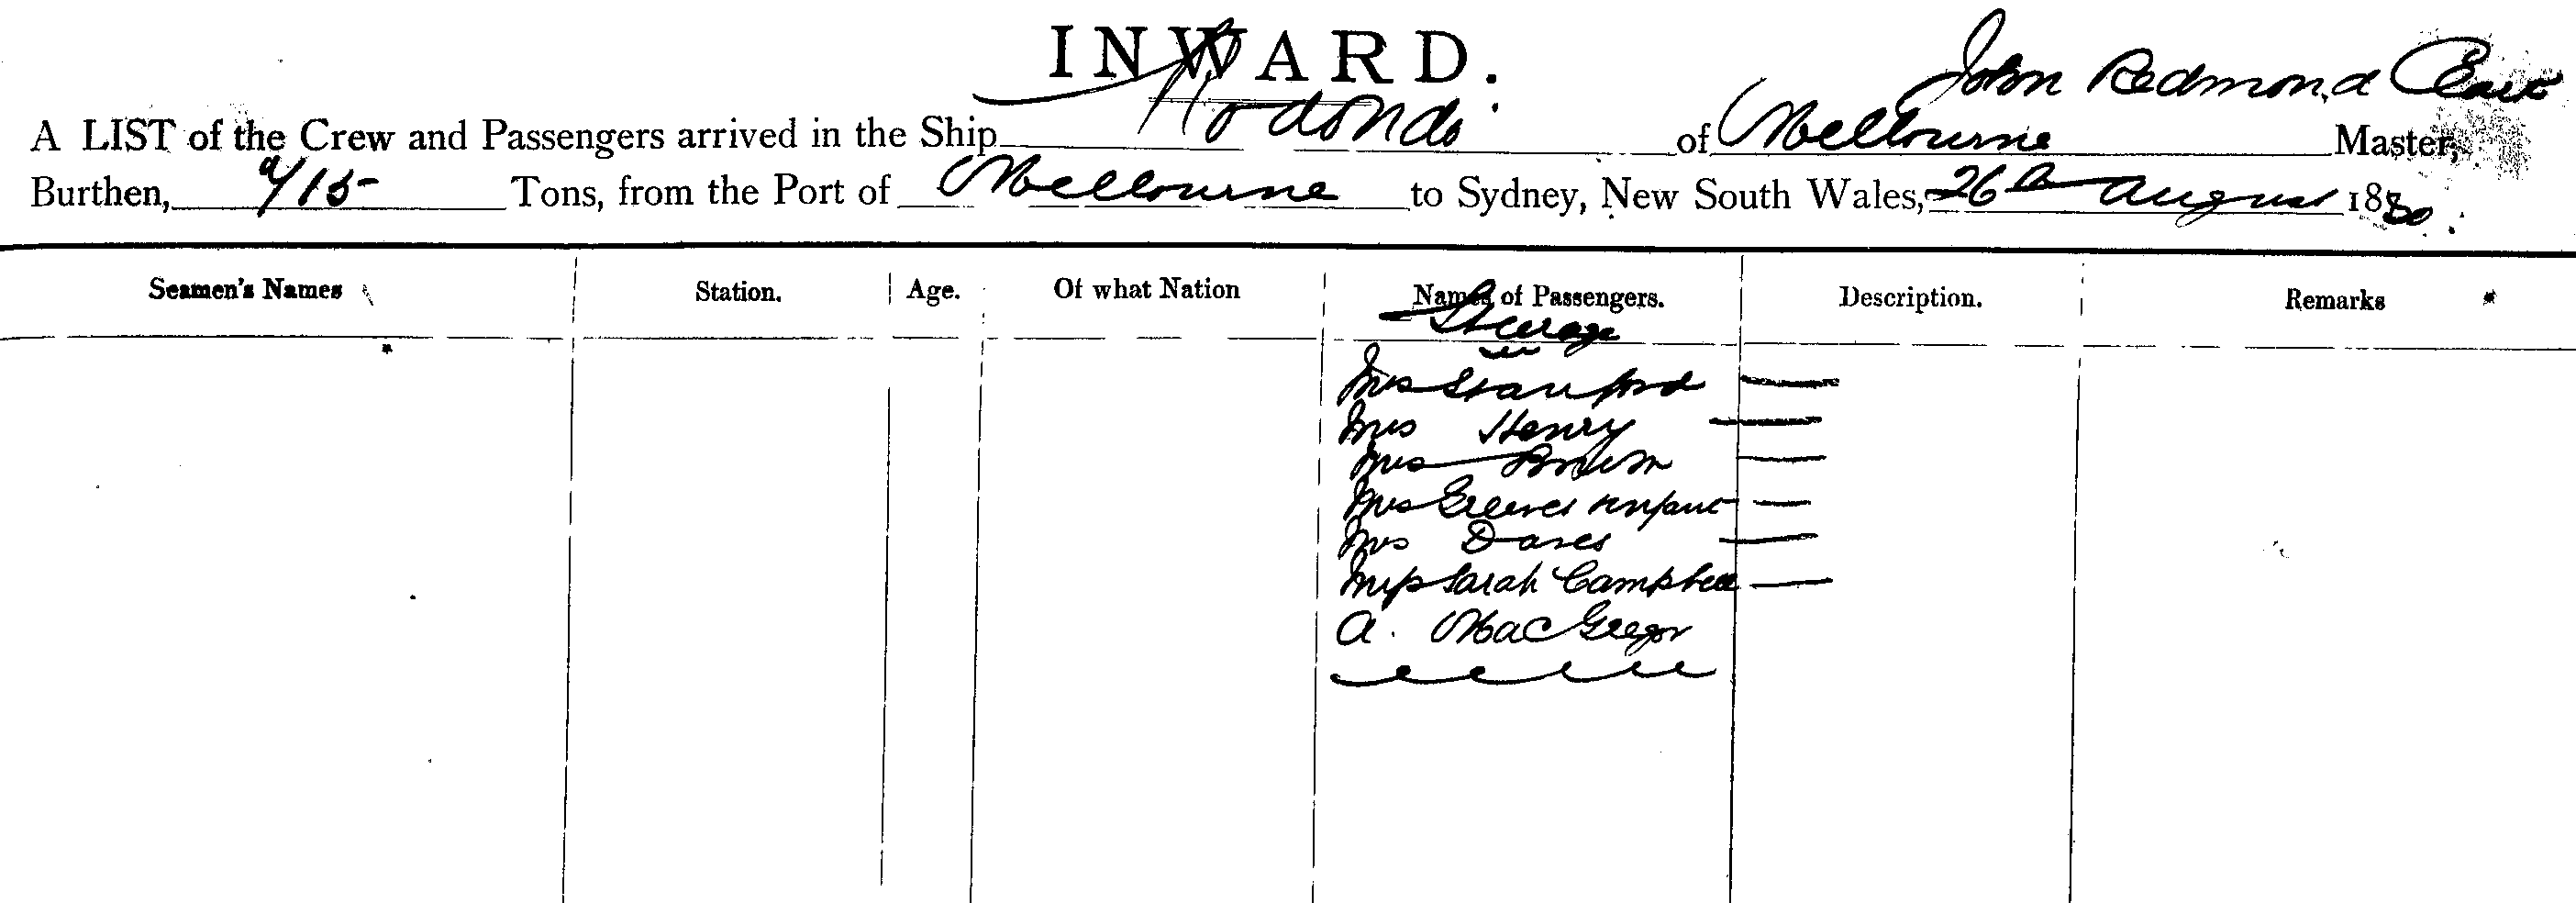 INWARD.
John Redmond
A LIST of the Crew and Passengers arrived in the Ship Hodondo of Melbourne Master,
Burthen, 715 Tons, from the Port of Melbourne to Sydney, New South Wales, 26th August 1880
Seamen's Names Station. Age. Of what Nation Names of Passengers. Description. Remarks
Steerage
Mrs Stanford
Mrs Henry
Mrs
Mrs Greeves infant
Mrs Dares
Miss Sarah Campbell
A. MacGregor